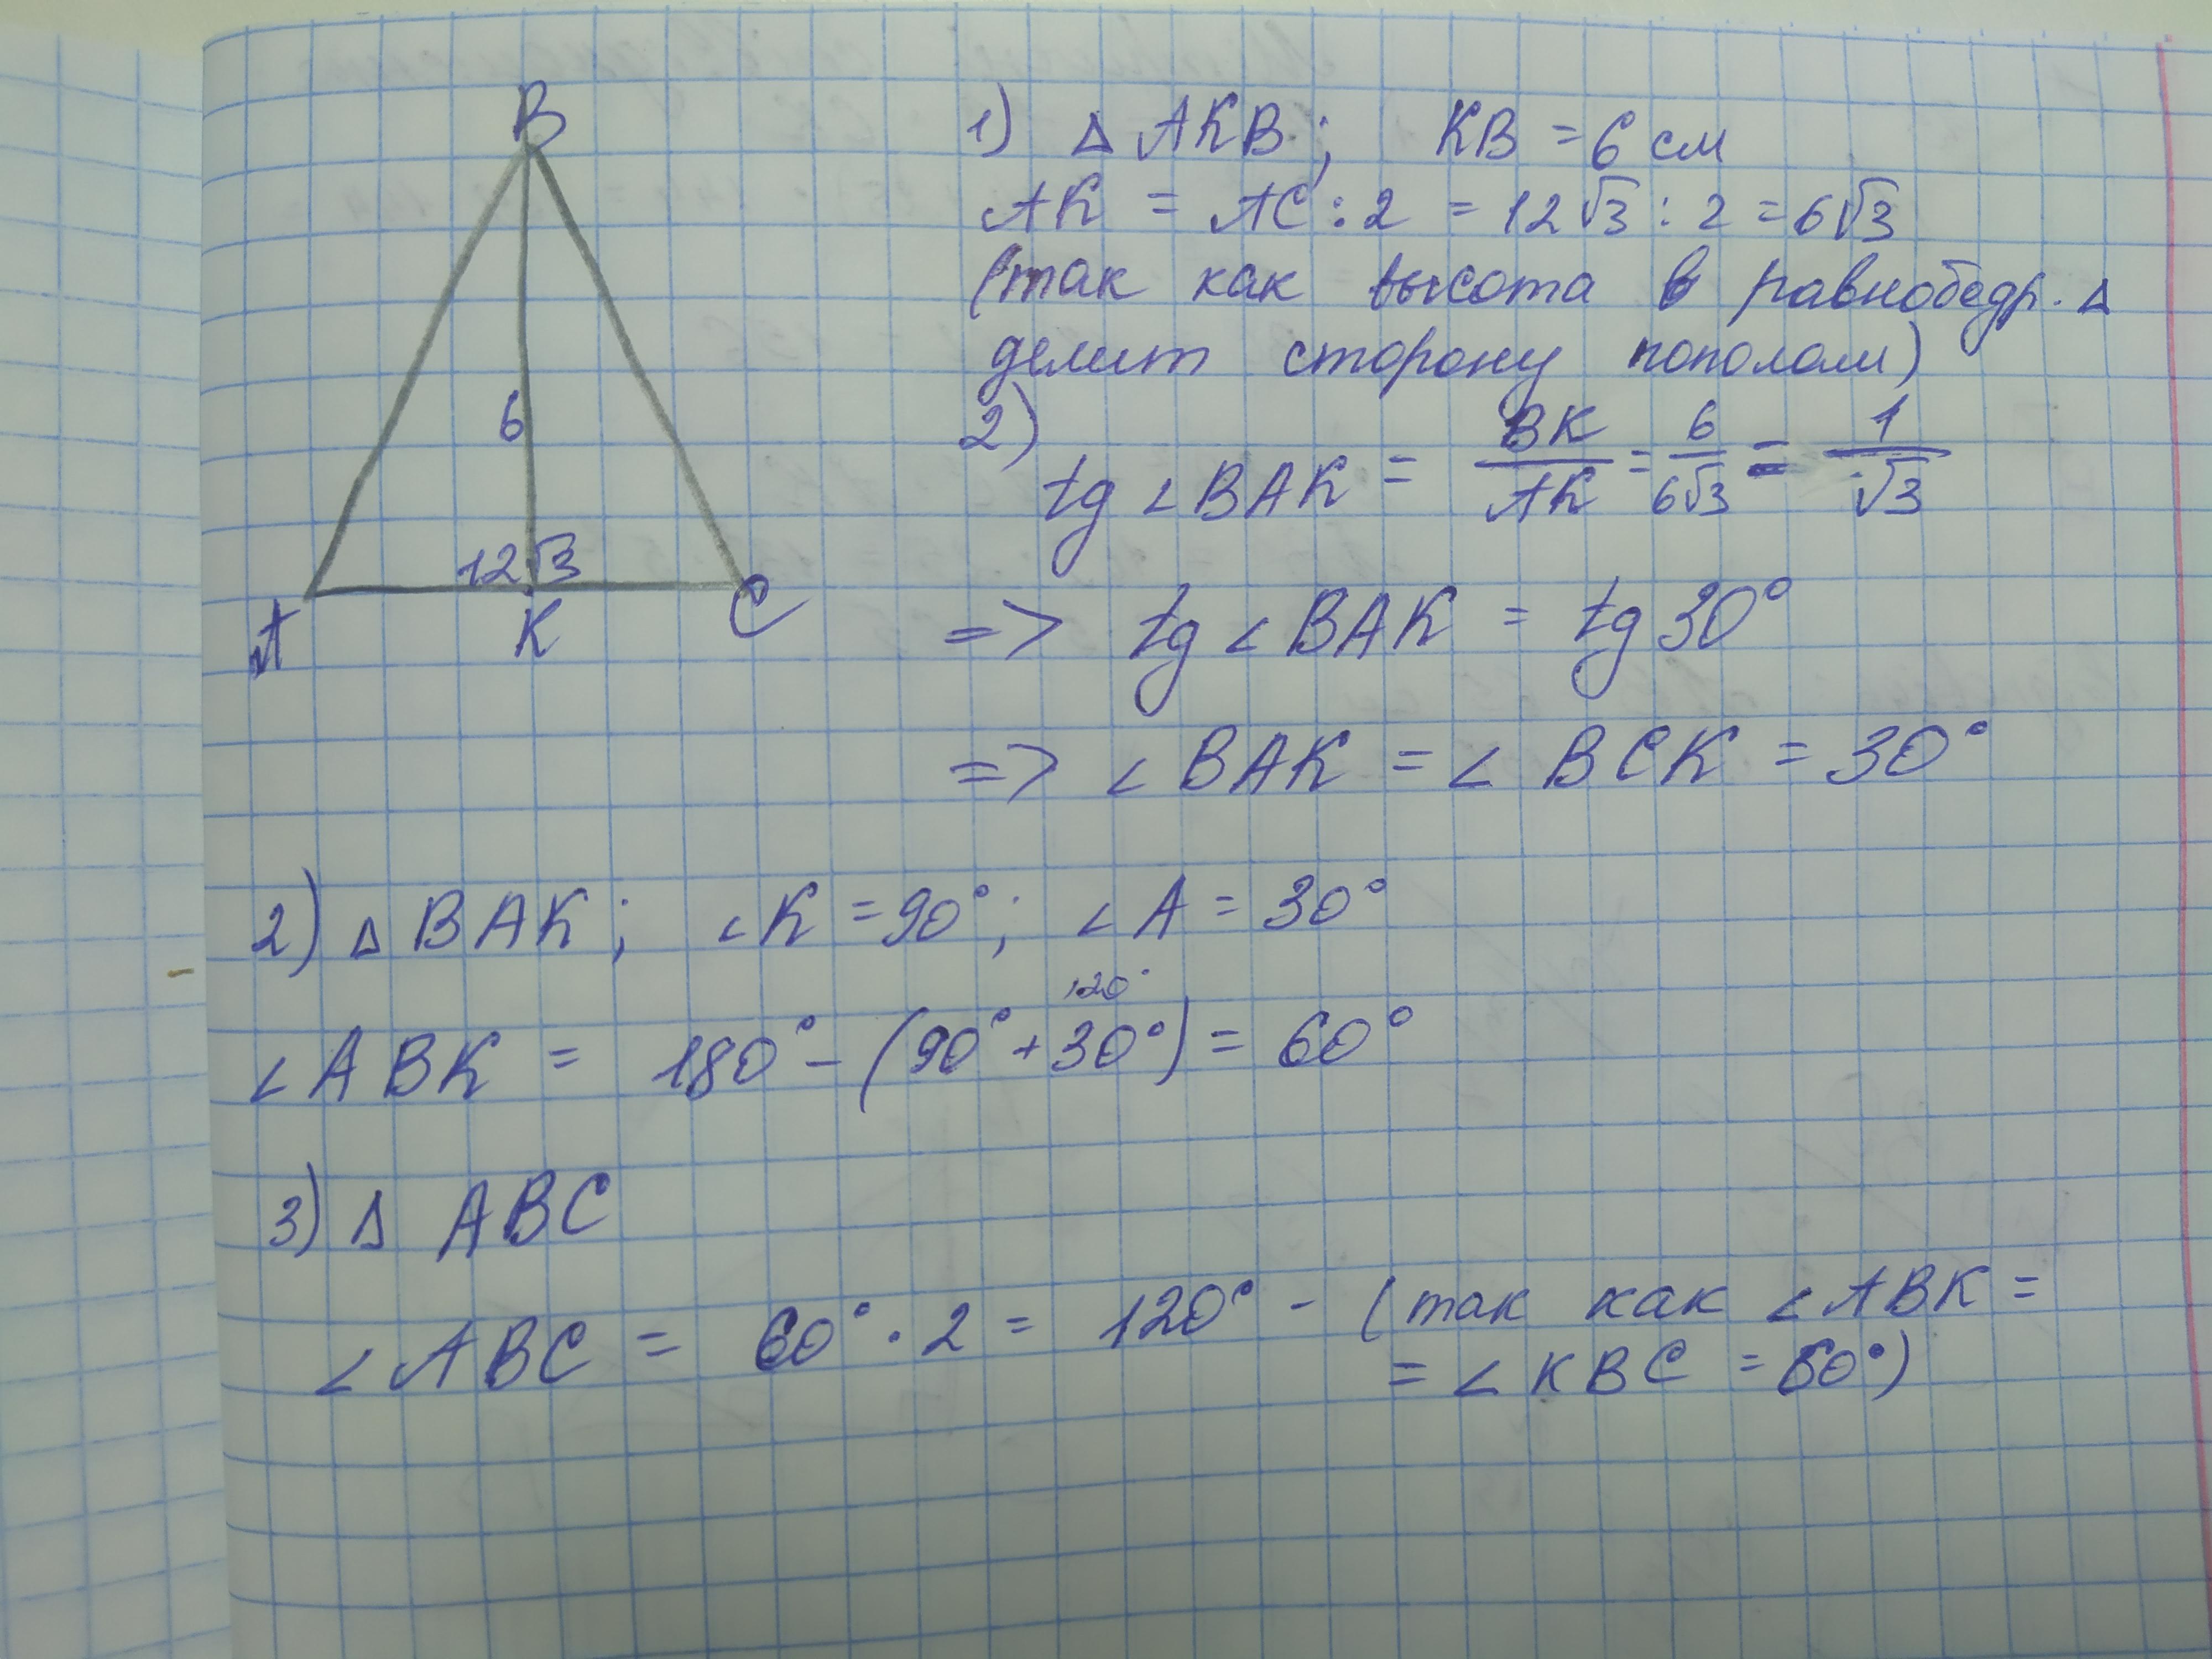 B
6
12√3
A
K
C
1) Δ AKB; KB = 6 см
AK = AC : 2 = 12√3 : 2 = 6√3
(так как высота в равнобедр. Δ
делит сторону пополам)
2)
tg ∠BAK = BK/AK = 6/6√3 = 1/√3
=> tg ∠BAK = tg 30°
=> ∠BAK = ∠BCK = 30°
2) Δ BAK; ∠K = 90°; ∠A = 30°
120°
∠ABK = 180° - (90° + 30°) = 60°
3) Δ ABC
∠ABC = 60° · 2 = 120° - (так как ∠ABK =
= ∠KBC = 60°)